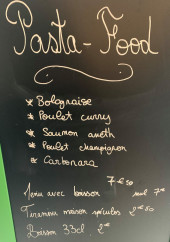 Pasta-Food
* Bolognaise
* Poulet curry
* Saumon aneth
* Poulet champignon
* Carbonara
7€50
Menu avec boisson 7€
Tiramisu maison spéculos 2€50
Boisson 33cl 2€